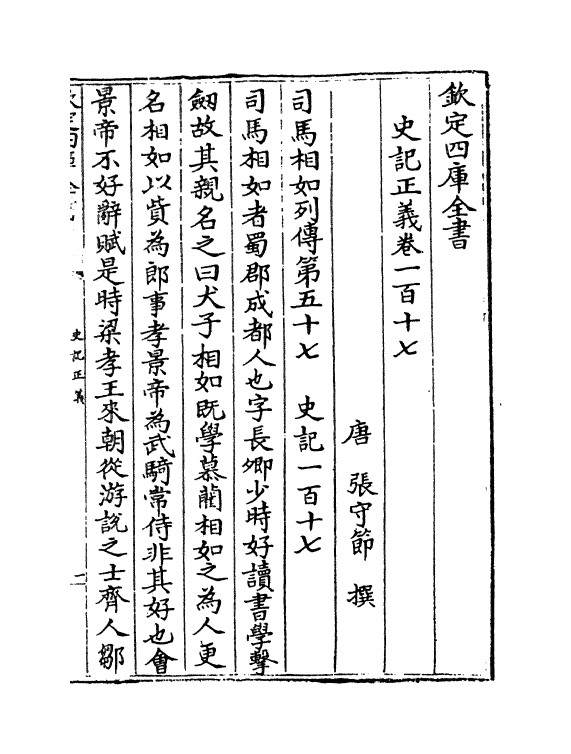 欽定四庫全書
史記正義卷一百十七
唐 張守節 撰
司馬相如列傳第五十七 史記一百十七
司馬相如者蜀郡成都人也字長卿少時好讀書學擊
劒故其親名之曰犬子相如既學慕藺相如之為人更
名相如以貲為郎事孝景帝為武騎常侍非其好也會
景帝不好辭賦是時梁孝王來朝從游說之士齊人鄒
史記正義